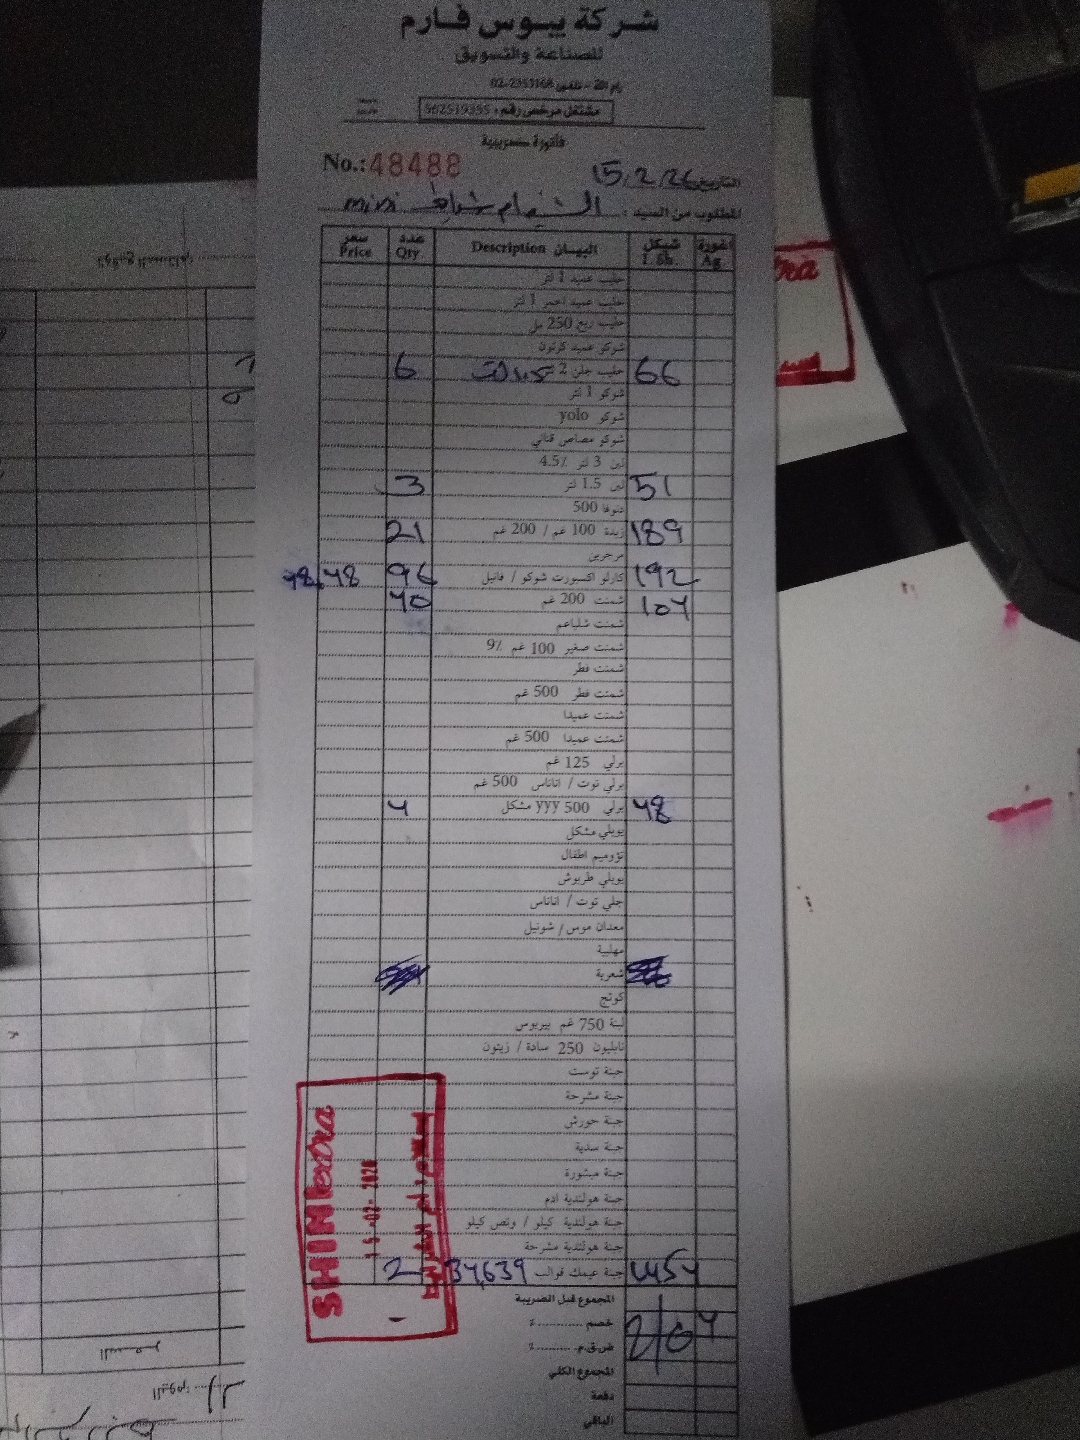 شركة بيوس فارم
للصناعة والتسويق
رام الله - تلفون 02-2353168
مشتغل مرخص رقم: 562519355
فاتورة ضريبية
No.: 48488
التاريخ 15/2/26
المطلوب من السيد: mini
سعر Price عدد Qty البيان Description شيكل I. Sh. اغورة Ag
حليب عميد 1 لتر
حليب عميد احمر 1 لتر
حليب ربع 250 مل
شوكو عميد كرتون
6 حليب جلن 2 لتر 66
شوكو 1 لتر
شوكو yolo
شوكو مصاص قناني
لبن 3 لتر 4.5٪
3 لبن 1.5 لتر 51
دنوفا 500
21 زبدة 100 غم / 200 غم 189
مرجرين
48,48 96 كارلو اكسبورت شوكو / فانيل 192
40 شمنت 200 غم 104
شمنت شلباعم
شمنت صغير 100 غم 9٪
شمنت فطر
شمنت فطر 500 غم
شمنت عميدا
شمنت عميدا 500 غم
برلي 125 غم
برلي توت / اناناس 500 غم
4 برلي 500 yyy مشكل 48
يوبلي مشكل
بوبلي طربوش
جلي توت / اناناس
مهلبية
شعرية
كوتج
لبنة 750 غم بيريوس
نابليون 250 سادة / زيتون
جبنة توست
جبنة مشرحة
جبنة حورش
جبنة مبشورة
جبنة هولندية ادم
جبنة هولندية كيلو / ونص كيلو
جبنة هولندية مشرحة
2 جبنة عيمك قوالب 34,639 1454
المجموع قبل الضريبة
خصم ............ ٪
ض.ق.م ............ ٪
2104
المجموع الكلي
دفعة
الباقي
SHINI extra
15-02-2026